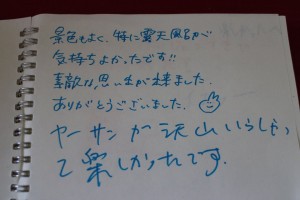 景色もよく、特に露天風呂が
気持ちよかったです!!
素敵な思い出が出来ました。
ありがとうございました。
ヤーサンが沢山いらしゃっ
て楽しかったです。